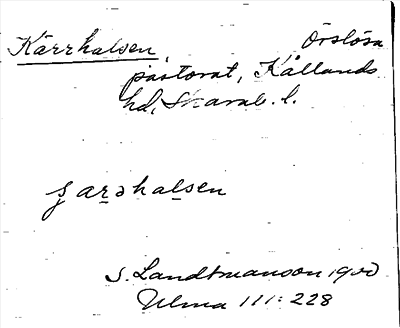 Kärrhalsen, Örslösa
pastorat, Kållands
hd, Skarab. l.
ʂarəhalsen
S. Landtmanson 1900
Ulma 111: 228